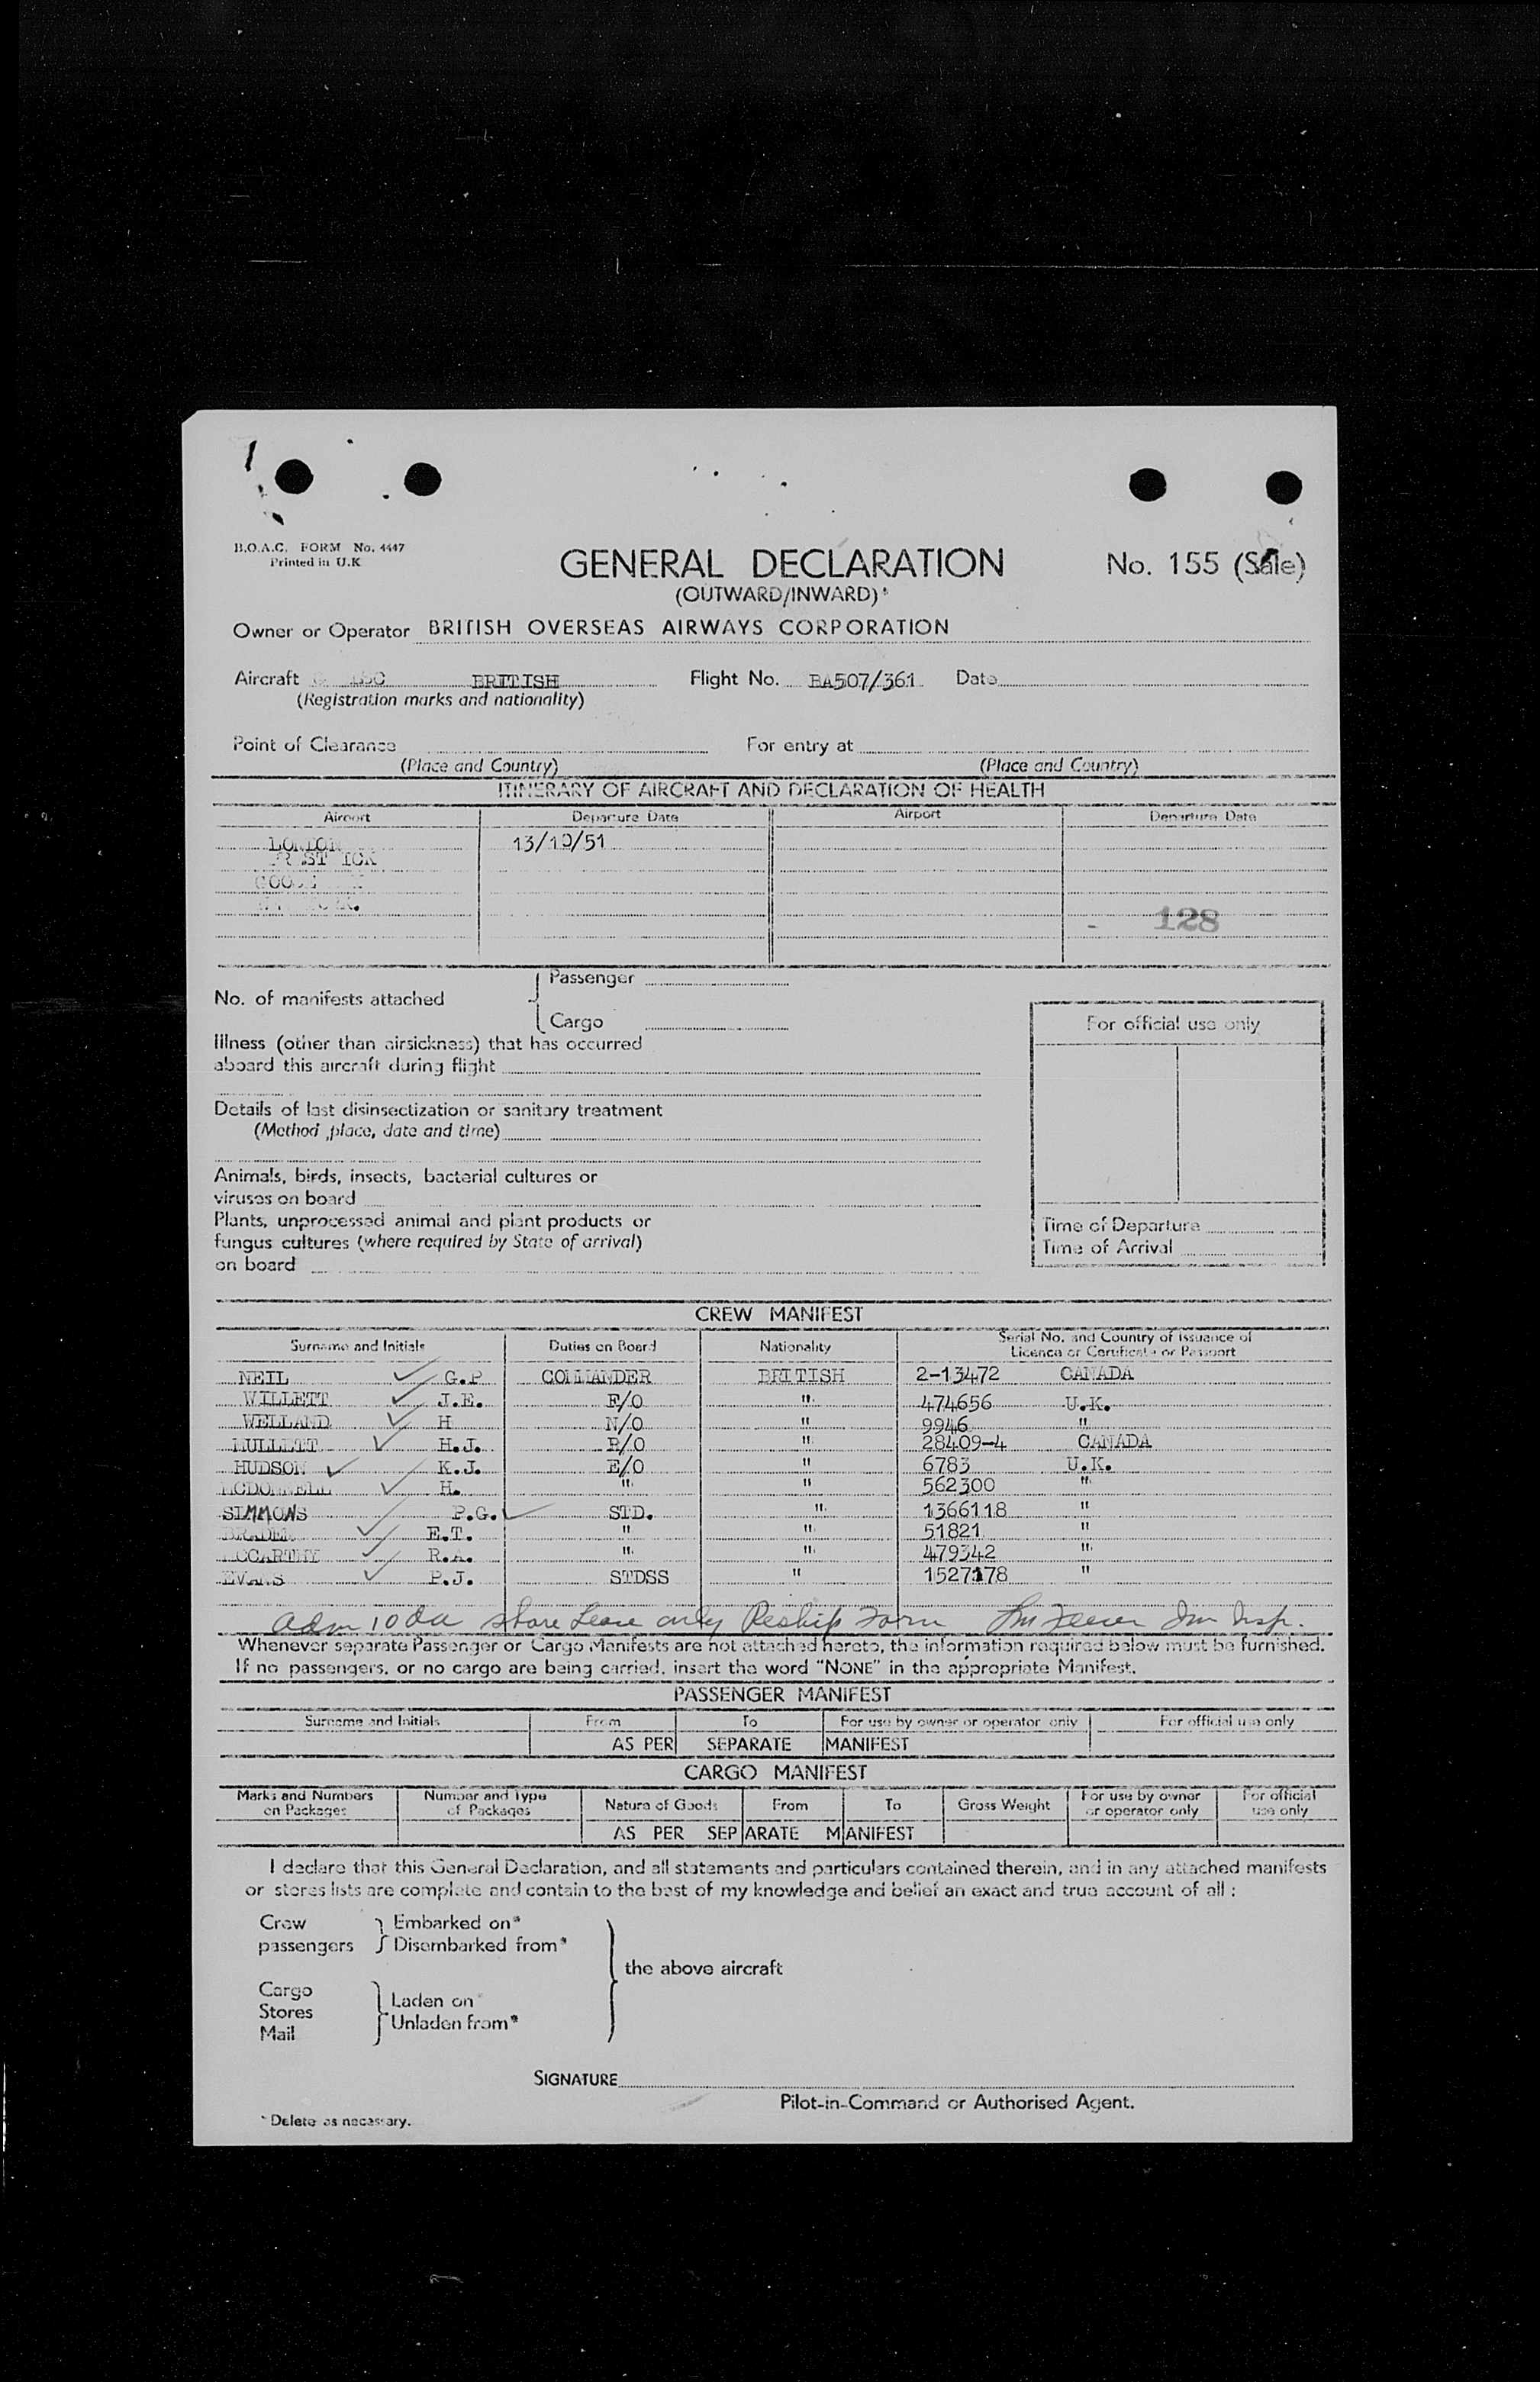 B.O.A.C. FORM No. 4447
Printed in U.K
GENERAL DECLARATION
No. 155 (Sale)
(OUTWARD/INWARD)*
Owner or Operator BRITISH OVERSEAS AIRWAYS CORPORATION
Aircraft BRITISH Flight No. BA507/361 Date
(Registration marks and nationality)
Point of Clearance For entry at
(Place and Country) (Place and Country)
ITINERARY OF AIRCRAFT AND DECLARATION OF HEALTH
Airport Departure Date Airport Departure Date
LONDON 13/10/51
128
No. of manifests attached { Passenger
Cargo
For official use only
Illness (other than airsickness) that has occurred
aboard this aircraft during flight
Details of last disinsectization or sanitary treatment
(Method ,place, date and time)
Animals, birds, insects, bacterial cultures or
viruses on board
Plants, unprocessed animal and plant products or
fungus cultures (where required by State of arrival)
on board
Time of Departure
Time of Arrival
CREW MANIFEST
Surname and Initials Duties on Board Nationality Serial No. and Country of Issuance of
Licence or Certificate or Passport
NEIL G.P COMMANDER BRITISH 2-13472 CANADA
WILLETT J.E. F/O " 474656 U.K.
WELLAND H N/O " 9946 "
MULLETT H.J. R/O " 28409-4 CANADA
HUDSON K.J. E/O " 6783 U.K.
MCDONNELL H. " " 562300 "
SIMMONS P.G. STD. " 1366118 "
E.T. " " 51821 "
MCCARTHY R.A. " " 479342 "
EVANS P.J. STDSS " 1527178 "
Adm 10 da Shore Leave only Reship Form Imm Insp.
Whenever separate Passenger or Cargo Manifests are not attached hereto, the information required below must be furnished.
If no passengers, or no cargo are being carried, insert the word "NONE" in the appropriate Manifest.
PASSENGER MANIFEST
Surname and Initials From To For use by owner or operator only For official use only
AS PER SEPARATE MANIFEST
CARGO MANIFEST
Marks and Numbers on Packages Number and Type of Packages Nature of Goods From To Gross Weight For use by owner or operator only For official use only
AS PER SEPARATE MANIFEST
I declare that this General Declaration, and all statements and particulars contained therein, and in any attached manifests
or stores lists are complete and contain to the best of my knowledge and belief an exact and true account of all :
Crew } Embarked on*
passengers } Disembarked from*
the above aircraft
Cargo
Stores } Laden on*
Mail } Unladen from*
SIGNATURE
Pilot-in-Command or Authorised Agent.
* Delete as necessary.